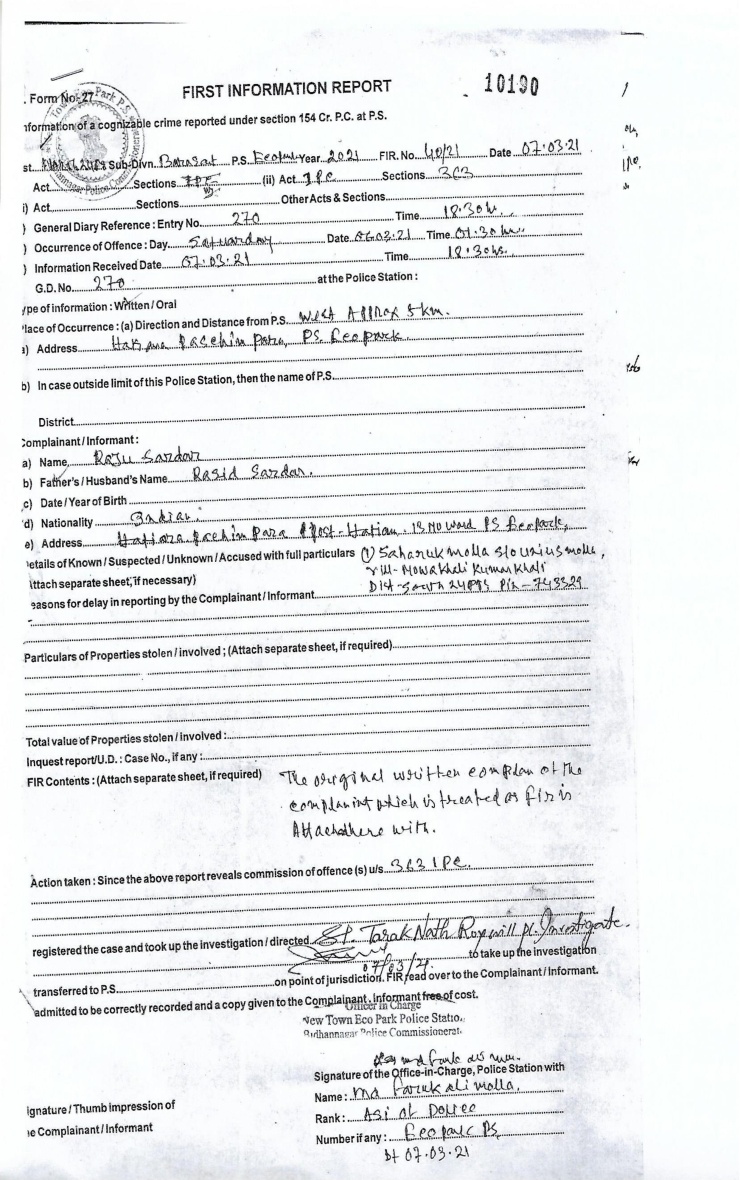 10190
FIRST INFORMATION REPORT
. Form No. 27
nformation of a cognizable crime reported under section 154 Cr. P.C. at P.S.
st. Sub-Divn. Barasat P.S. Year 2021 FIR. No. 40/21 Date 07.03.21
Act Sections (ii) Act IPC Sections 363
i) Act Sections Other Acts & Sections
) General Diary Reference : Entry No. 270 Time 18.30 hr.
) Occurrence of Offence : Day Date 06.03.21 Time 01.30 hr.
) Information Received Date 07.03.21 Time 18.30 hs.
G.D. No. 270 at the Police Station :
ype of information : Written / Oral
lace of Occurrence : (a) Direction and Distance from P.S. West Approx 5 km.
a) Address Para, PS. Ecopark
b) In case outside limit of this Police Station, then the name of P.S.
District
Complainant / Informant :
a) Name Raju Sardar
b) Father's / Husband's Name Rasid Sardar.
c) Date / Year of Birth
d) Nationality Indian.
e) Address Para Post- PS Ecopark,
Details of Known / Suspected / Unknown / Accused with full particulars (1) Saharuk molla s/o molla,
Attach separate sheet, if necessary) vill- Nowakhali Kumarkhali
easons for delay in reporting by the Complainant / Informant Dist- South 24 Pin - 743329
Particulars of Properties stolen / involved ; (Attach separate sheet, if required)
Total value of Properties stolen / involved :
Inquest report/U.D. : Case No., if any :
FIR Contents : (Attach separate sheet, if required) The original written complan of the
complainint which is treated as fir is
Attached here with.
Action taken : Since the above report reveals commission of offence (s) u/s 363 IPC.
registered the case and took up the investigation / directed Tarak Nath Roy will pl. Investigate.
to take up the investigation
07/03/21.
transferred to P.S. on point of jurisdiction. FIR read over to the Complainant / Informant.
admitted to be correctly recorded and a copy given to the Complainant. Informant free of cost.
Officer In Charge
New Town Eco Park Police Statio.
Bidhannagar Police Commissionerat.
Signature of the Office-in-Charge, Police Station with
Name : Md Faruk ali molla.
ignature / Thumb impression of
Rank : Asi of
e Complainant / Informant
Number if any : Ecoparc PS
Dt 07.03.21